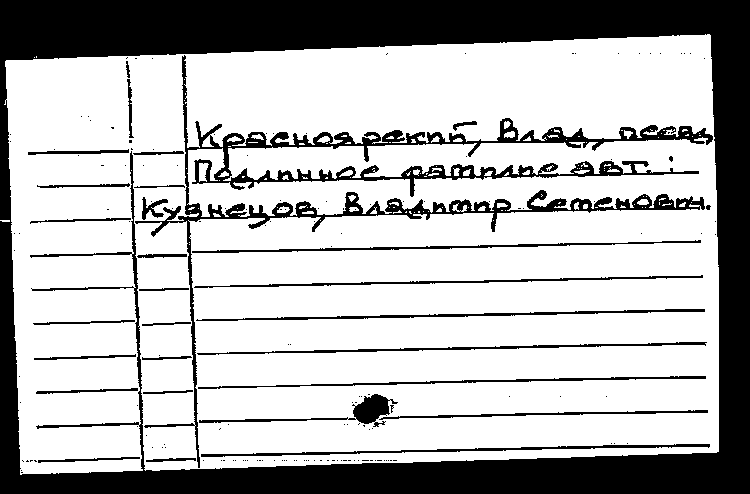 Красноярский, Влад, псевд
Подлинное фамилие авт. :
Кузнецов, Владимир Семенович.